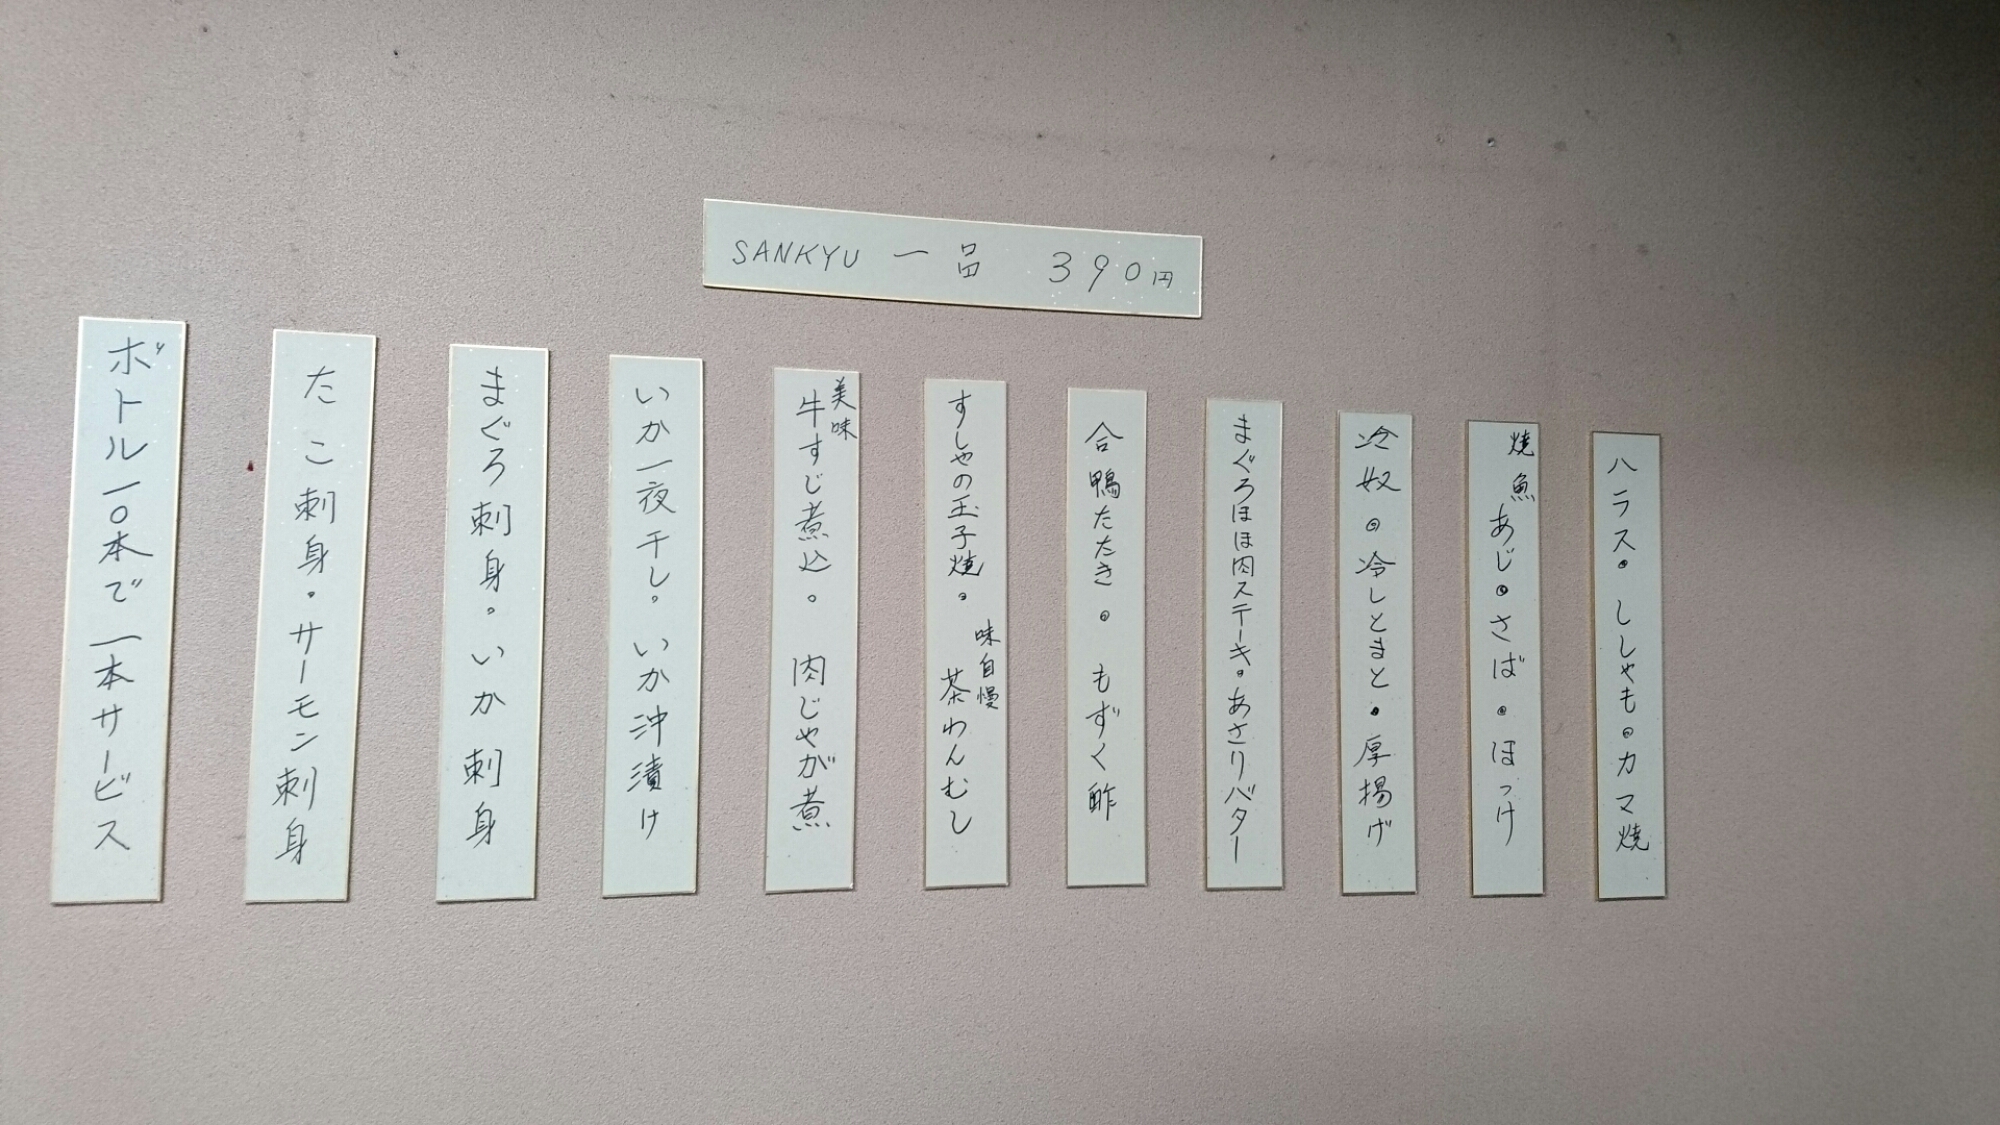 SANKYU 一品 390円
ハラス・ししゃも・カマ焼
焼魚 あじ・さば・ほっけ
冷奴・冷しとまと・厚揚げ
まぐろほほ肉ステーキ・あさりバター
合鴨たたき・もずく酢
すしやの玉子焼・味自慢 茶わんむし
美味 牛すじ煮込・肉じゃが煮
いか一夜干し・いか沖漬け
まぐろ刺身・いか刺身
たこ刺身・サーモン刺身
ボトル一〇本で一本サービス